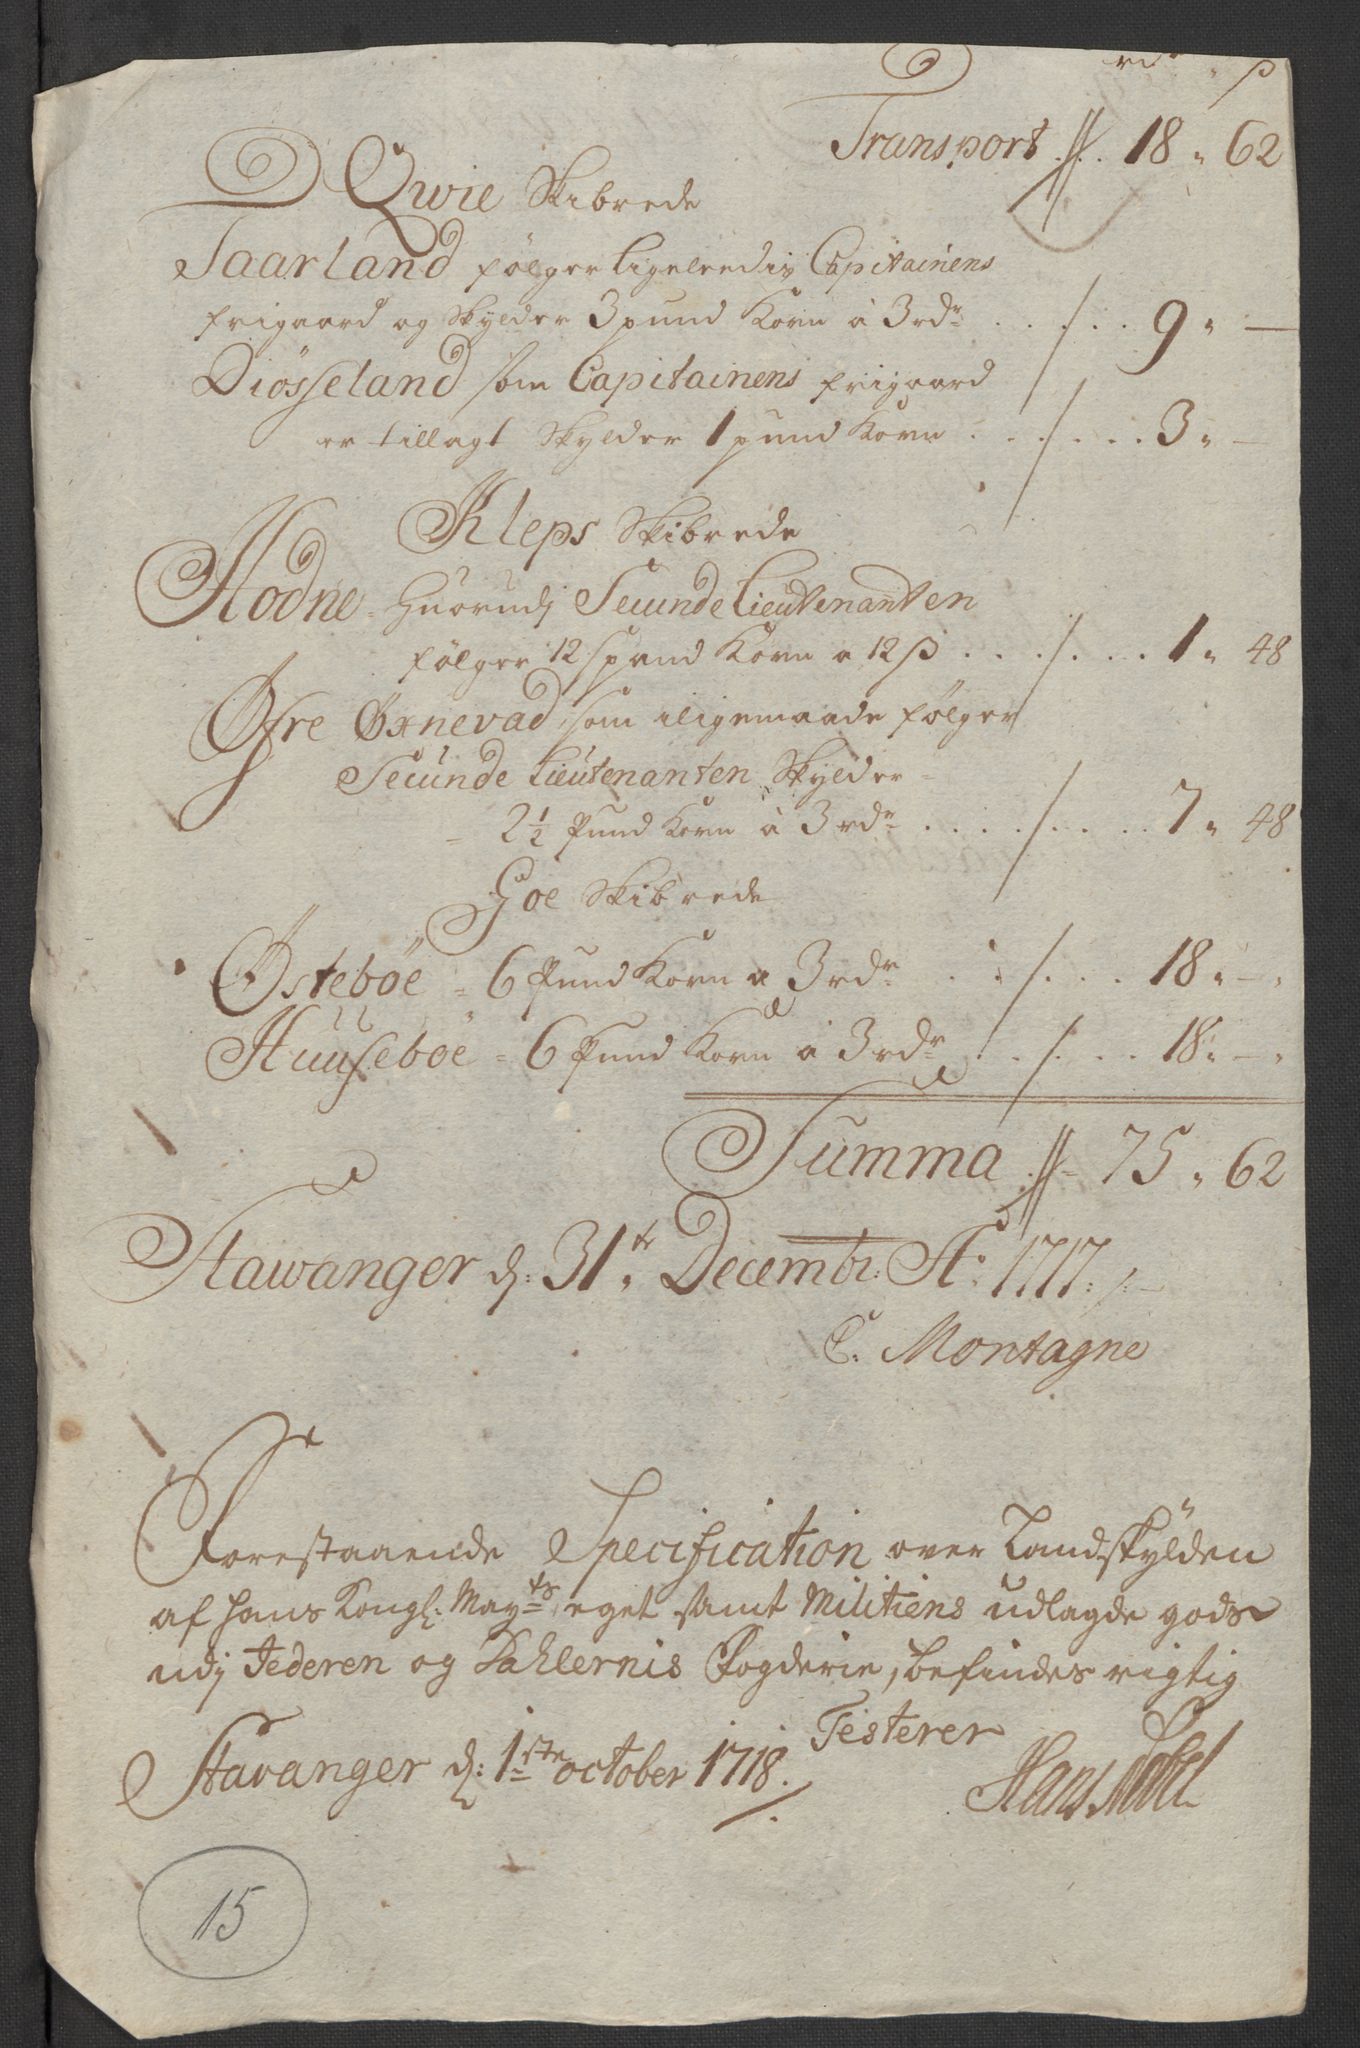 rdr " ß
Transport // 18 " 62
Qwie Skibrede
Taarland følger ligeledis Capitainens
frigaard og Skylder 3 pund Korn à 3 rdr . . / . . 9 " —
Diösseland som Capitainens frigaard
er tillagt Skylder 1 pund Korn . . . / . . . 3 " —
Kleps Skibrede
Hodne - Huorudj Secunde Lieutenanten
følger 12 spand Korn a 12 ß . . . / . . . 1 " 48
Øfre Øxnevad som iligemaade følger
Secunde Lieutenanten Skylder =
= 2½ Pund Korn à 3 rdr . . . . / . . . . 7 " 48
Goe Skibrede
Østebøe = 6 Pund Korn a 3 rdr . . / . . . 18 " — "
Huusebøe = 6 Pund Korn à 3 rdr . . / . . . 18 " — "
Summa // - 75 " 62
Stawanger d: 31te Decembr: Ao: 1717 ./.
C: Montagne
Forestaaende Specification over Landskylden
af Hans Kongl: Mayts eget samt Militiens udlagde gods
udj Jederen og Dahlernis Fogderie, befindes rigtig
Testerer
Stavanger d: 1ste october 1718.
Hans Nobel
15